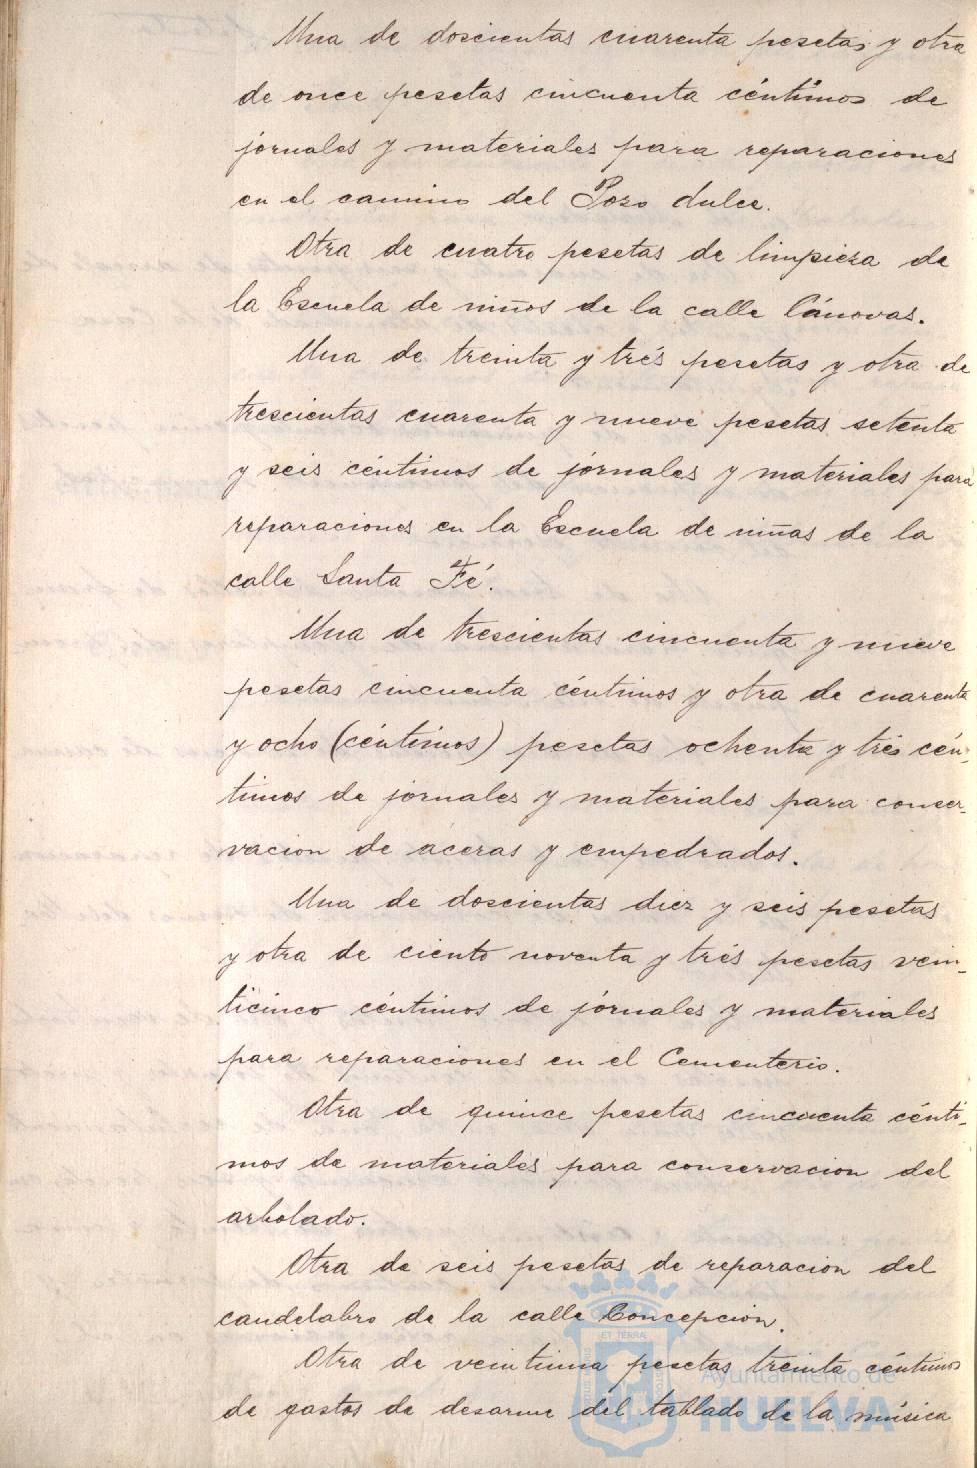 Una de doscientas cuarenta pesetas y otra
de once pesetas cincuenta céntimos de
jornales y materiales para reparaciones
en el camino del Pozo dulce.
Otra de cuatro pesetas de limpieza de
la Escuela de niños de la calle Cánovas.
Una de treinta y trés pesetas y otra de
trescientas cuarenta y nueve pesetas setenta
y seis céntimos de jornales y materiales para
reparaciones en la Escuela de niñas de la
calle Santa Fé.
Una de trescientas cincuenta y nueve
pesetas cincuenta céntimos y otra de cuarenta
y ocho (céntimos) pesetas ochenta y trés cén-
timos de jornales y materiales para conser-
vacion de aceras y empedrados.
Una de doscientas diez y seis pesetas
y otra de ciento noventa y trés pesetas vein-
ticinco céntimos de jornales y materiales
para reparaciones en el Cementerio.
Otra de quince pesetas cincuenta cénti-
mos de materiales para conservacion del
arbolado.
Otra de seis pesetas de reparacion del
candelabro de la calle Concepcion.
Otra de veintiuna pesetas treinta céntimos
de gastos de desarme del tablado de la música
ET TERRA
Ayuntamiento de
HUELVA